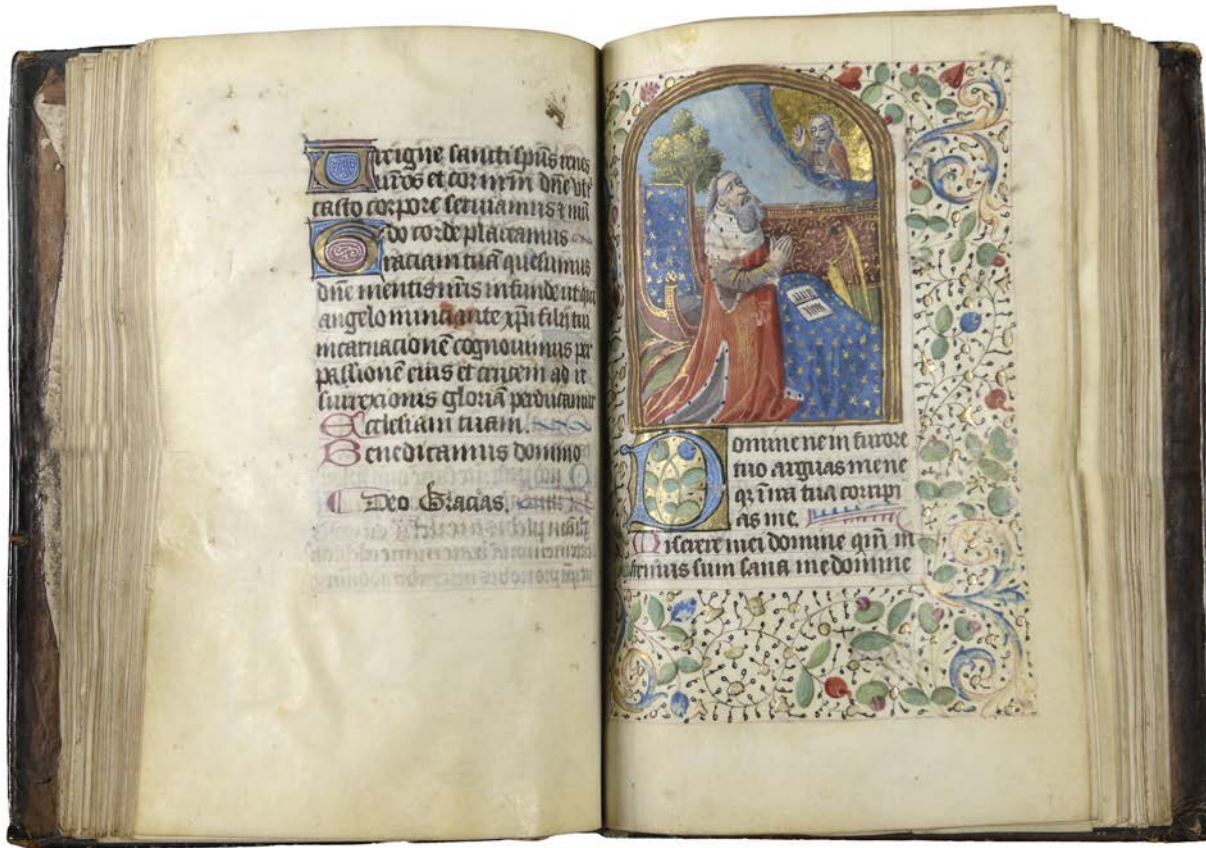 Vre igne sancti sp̃us renes
nr̃os et cor nr̃m dñe vt t
casto corpore seruiamus ⁊ mũ
do corde placeamus
Graciam tuã quesumus
dñe mentib nr̃is infunde ut qui
angelo nunciante xp̃i filij tui
incarnacionẽ cognouimus per
passionẽ eius et crucem ad re
surrexionis gloriã perducamur
Ecclesiam tuam.
Benedicamus domino
Deo Gracias.
Domine ne in furore
tuo arguas me ne
qꝫ in ira tua corripi
as me.
Miserere mei domine qm̃ in
firmus sum sana me domine